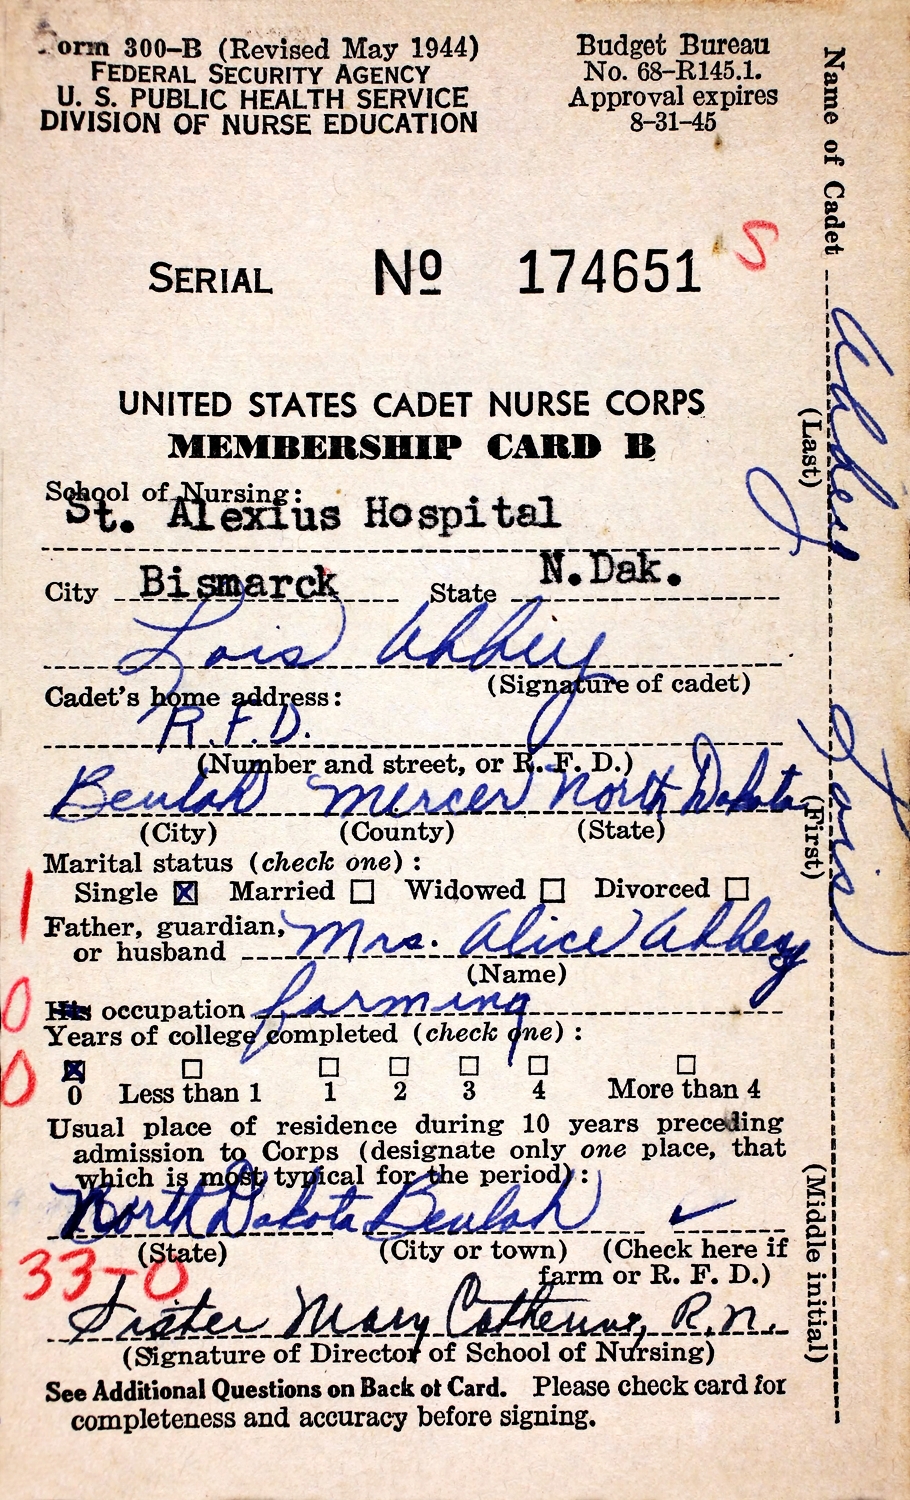 Form 300-B (Revised May 1944)
FEDERAL SECURITY AGENCY
U. S. PUBLIC HEALTH SERVICE
DIVISION OF NURSE EDUCATION
Budget Bureau
No. 68-R145.1.
Approval expires
8-31-45
SERIAL No 174651
S
UNITED STATES CADET NURSE CORPS
MEMBERSHIP CARD B
School of Nursing:
St. Alexius Hospital
City Bismarck State N.Dak.
Lois Abbey
(Signature of cadet)
Cadet's home address:
R.F.D.
(Number and street, or R. F. D.)
Beulah Mercer North Dakota
(City) (County) (State)
Marital status (check one):
Single ☒ Married ☐ Widowed ☐ Divorced ☐
1
Father, guardian,
or husband Mrs. Alice Abbey
(Name)
0
His occupation farming
Years of college completed (check one):
☒ ☐ ☐ ☐ ☐ ☐ ☐
0
0 Less than 1 1 2 3 4 More than 4
Usual place of residence during 10 years preceding
admission to Corps (designate only one place, that
which is most typical for the period):
North Dakota Beulah ✓
(State) (City or town) (Check here if
farm or R. F. D.)
33-0
Sister Mary Catherine, R.N.
(Signature of Director of School of Nursing)
See Additional Questions on Back of Card. Please check card for
completeness and accuracy before signing.
Name of Cadet Abbey Lois
(Last) (First) (Middle initial)